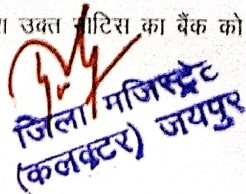 उक्त नोटिस का बैंक को
जिला मजिस्ट्रेट
(कलक्टर) जयपुर